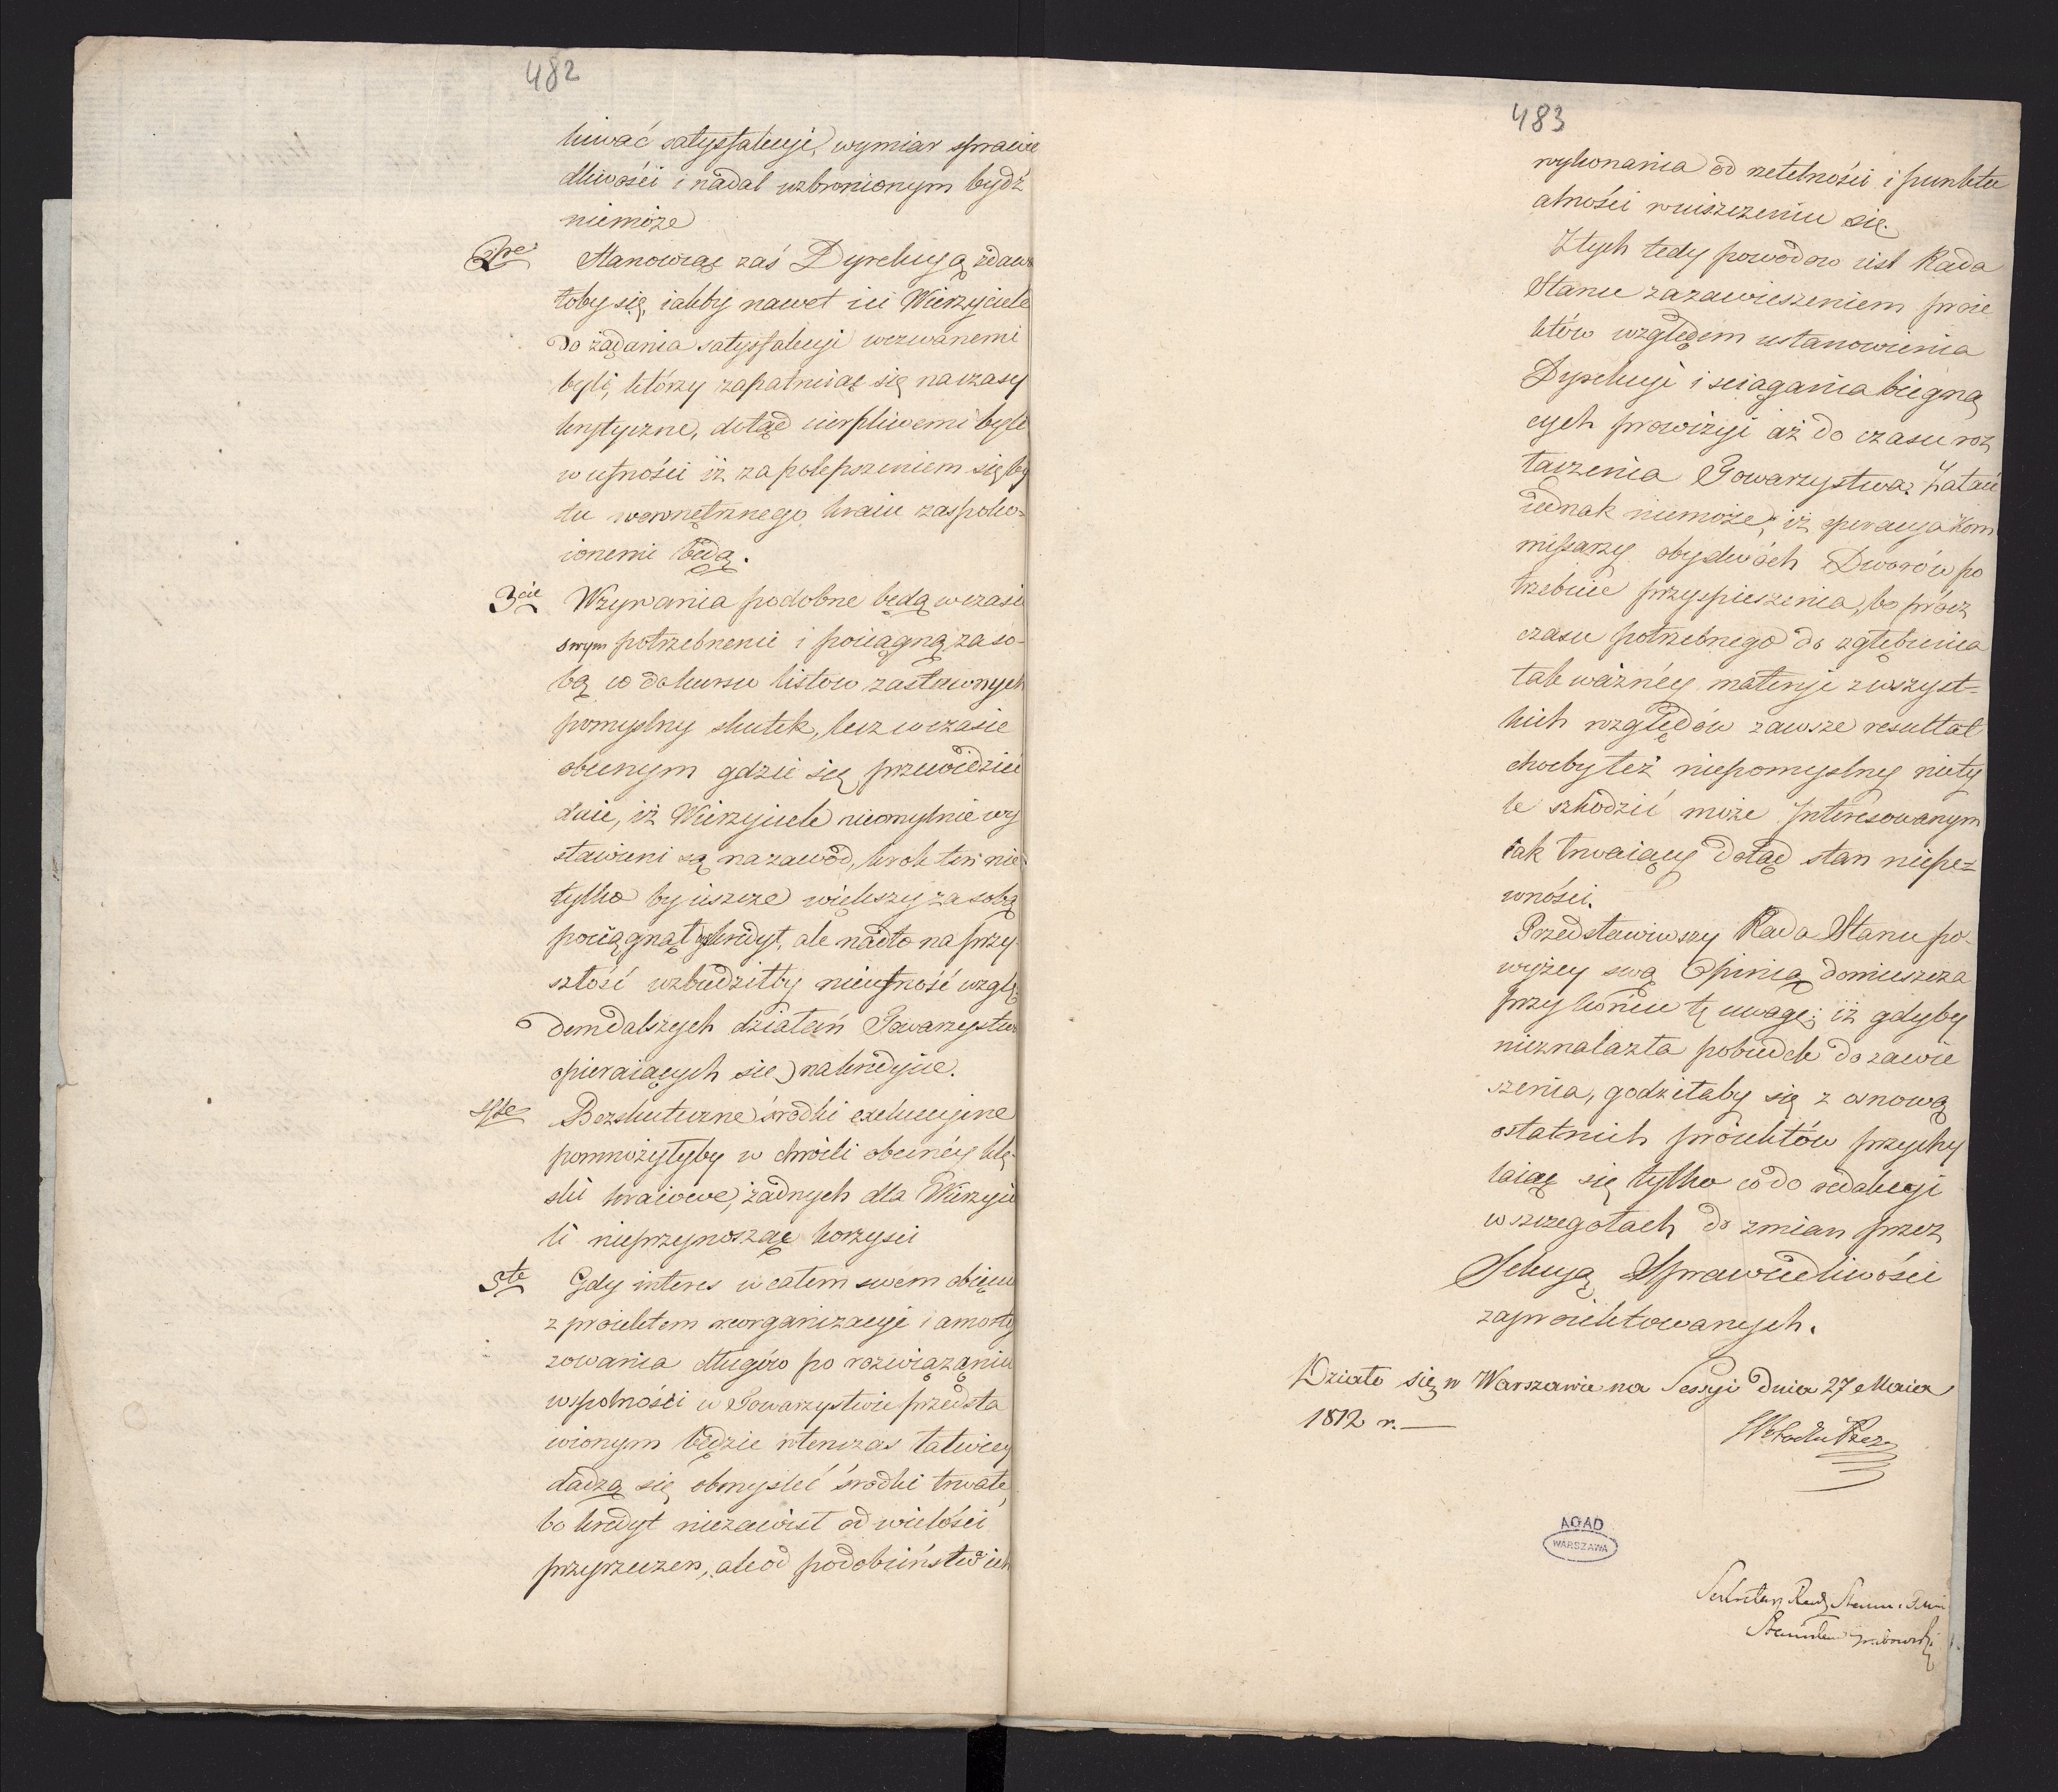 482
kiwać satysfakcyi, wymiar sprawie
dliwości i nadal wzbronionym bydź
niemoże
2re Stanowiąc zaś Dyrekcyą zdawa
łoby się, iakby nawet ici Wierzyciele
do żądania satysfakcyi wezwanemi
byli, którzy zapatruiąc się na czasy
krytyczne, dotąd cierpliwemi byli
w ufności iż za polepszeniem się by
tu wewnętrznego kraiu zaspoko-
ionemi będą.
3cie Wzywania podobne będą w czasie
swym potrzebnemi i pociągną za so-
bą co do kursu listow zastawnych
pomyslny skutek, lecz w czasie
obecnym gdzie się przewidzieć
daie, iż Wierzyciele nieomylnie wy
stawieni są na zawod, krok ten nie
tylko by ieszcze większy za sobą
pociągnął dyskredyt, ale nadto na przy-
szłość wzbudziłby nieufność wzglę-
dem dalszych działań Towarzystwa
opieraiących się na kredycie.
4te Bezskuteczne środki exekucyine
pomnożyłyby w chwili obecnéy klę-
ski kraiowe, żadnych dla Wierzycie
li nieprzynosząc korzysci
5te Gdy interes w całem swém obięciu
z proiektem reorganizacyi i amorty
zowania długów po rozwiązaniu
wspolności w Towarzystwie przedsta
wionym będzie wtenczas łatwiey
dadzą się obmyslić środki trwałe,
bo kredyt niezawisł od wielości
przyrzeczeń, ale od podobieństwa ich
483
wykonania od rzetelności i punktu
alności w uiszczeniu się.
Z tych tedy powodow iest Rada
Stanu za zawieszeniem proie
któw względem ustanowienia
Dyrekcyi i sciągania biegną
cych prowizyi aż do czasu roz
łączenia Towarzystwa. Zataić
iednak niemoże, iż operacya Kom
missarzy obydwóch Dworów po
trzebuie przyspieszenia, bo prócz
czasu potrzebnego do zgłębienia
tak ważnéy materyi z wszyst-
kich względów zawsze resultat
choćby też niepomyslny niety
le szkodzić może Interesowanym
iak trwaiący dotąd stan niepe-
wności.
Przedstawiwszy Rada Stanu po-
wyżey swą Opinią domieszcza
przy końcu tę uwagę; iż gdyby
nieznalazła pobudek do zawie
szenia, godziłaby się z osnową
ostatnich proiektów przychy
laiąc się tylko co do redakcyi
w szczegołach do zmian przez
Sekcyą Sprawiedliwości
zaproiektowanych.
Działo się w Warszawie na Sessyi dnia 27 Maia
1812 r.
AGAD
WARSZAWA
Sekretarz Rady Stanu
Stanisław Grabowski